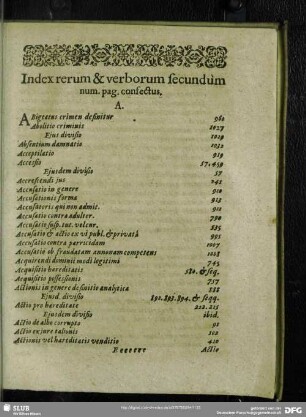 Index rerum & verborum secundum
num. pag. consectus,
A.
ABigeatus crimen definitur 981
Abolitio criminis 1027
Ejus divisio 1029
Absentium damnatio 1032
Acceptilatio 929
Accessio 57.459
Ejusdem divisio 57
Accrescendi jus 242
Accusatio in genere 910
Accusationis forma 912
Accusatores qui non admit. 911
Accusatio contra adulter. 790
Accusatio susp. tut. velcur. 235
Accusatio & actio ex vi publ. & privatâ 995
Accusatio contra parricidam 1007
Accusatio ob fraudatam annonam competens 1028
Acquirendi dominii modi legitimi 745
Acquisitio hereditatis 580. & seq.
Acquisitio possessionis 757
Actionis in genere definitio analytica 238
Eiusd. divisio 892.893.894. & seqq.
Actio pro hareditate 212.215
Ejusdem divisio ibid.
Actio de albo corrupto 91
Actio ex jure talionis 102
Actionis vel hareditatis venditio 420
Eeeeeee Actio
SLUB
Wir führen Wissen.
gefördert von der
Deutschen Forschungsgemeinschaft
DFG